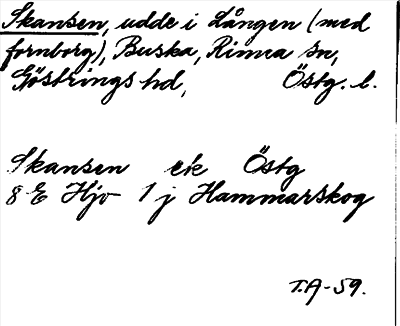 Skansen, udde i Lången (med
fornborg), Buska, Rinna sn,
Göstrings hd, Östg. l.
Skansen ek Östg
8 E Hjo 1 j Hammarskog
T.A-59.